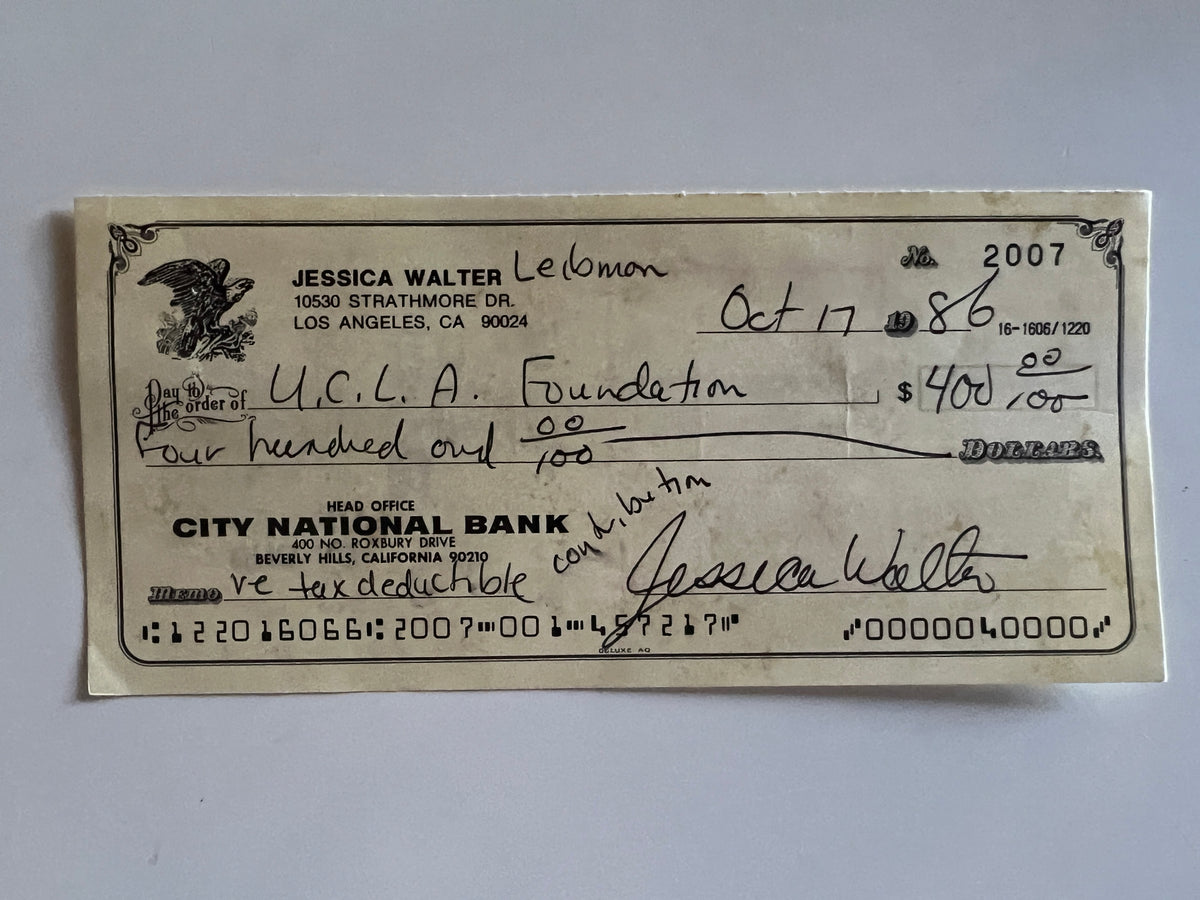 JESSICA WALTER Leibman
No. 2007
10530 STRATHMORE DR.
LOS ANGELES, CA 90024
Oct 17 19 86
16-1606/1220
Pay to the order of U.C.L.A. Foundation $ 400 00/100
Four hundred and 00/100 DOLLARS
HEAD OFFICE
CITY NATIONAL BANK
400 NO. ROXBURY DRIVE
BEVERLY HILLS, CALIFORNIA 90210
contribution
Memo re tax deductible
Jessica Walter
⑆122016066⑆2007⑉001⑉457217⑈ ⑇0000040000⑇
DELUXE AQ